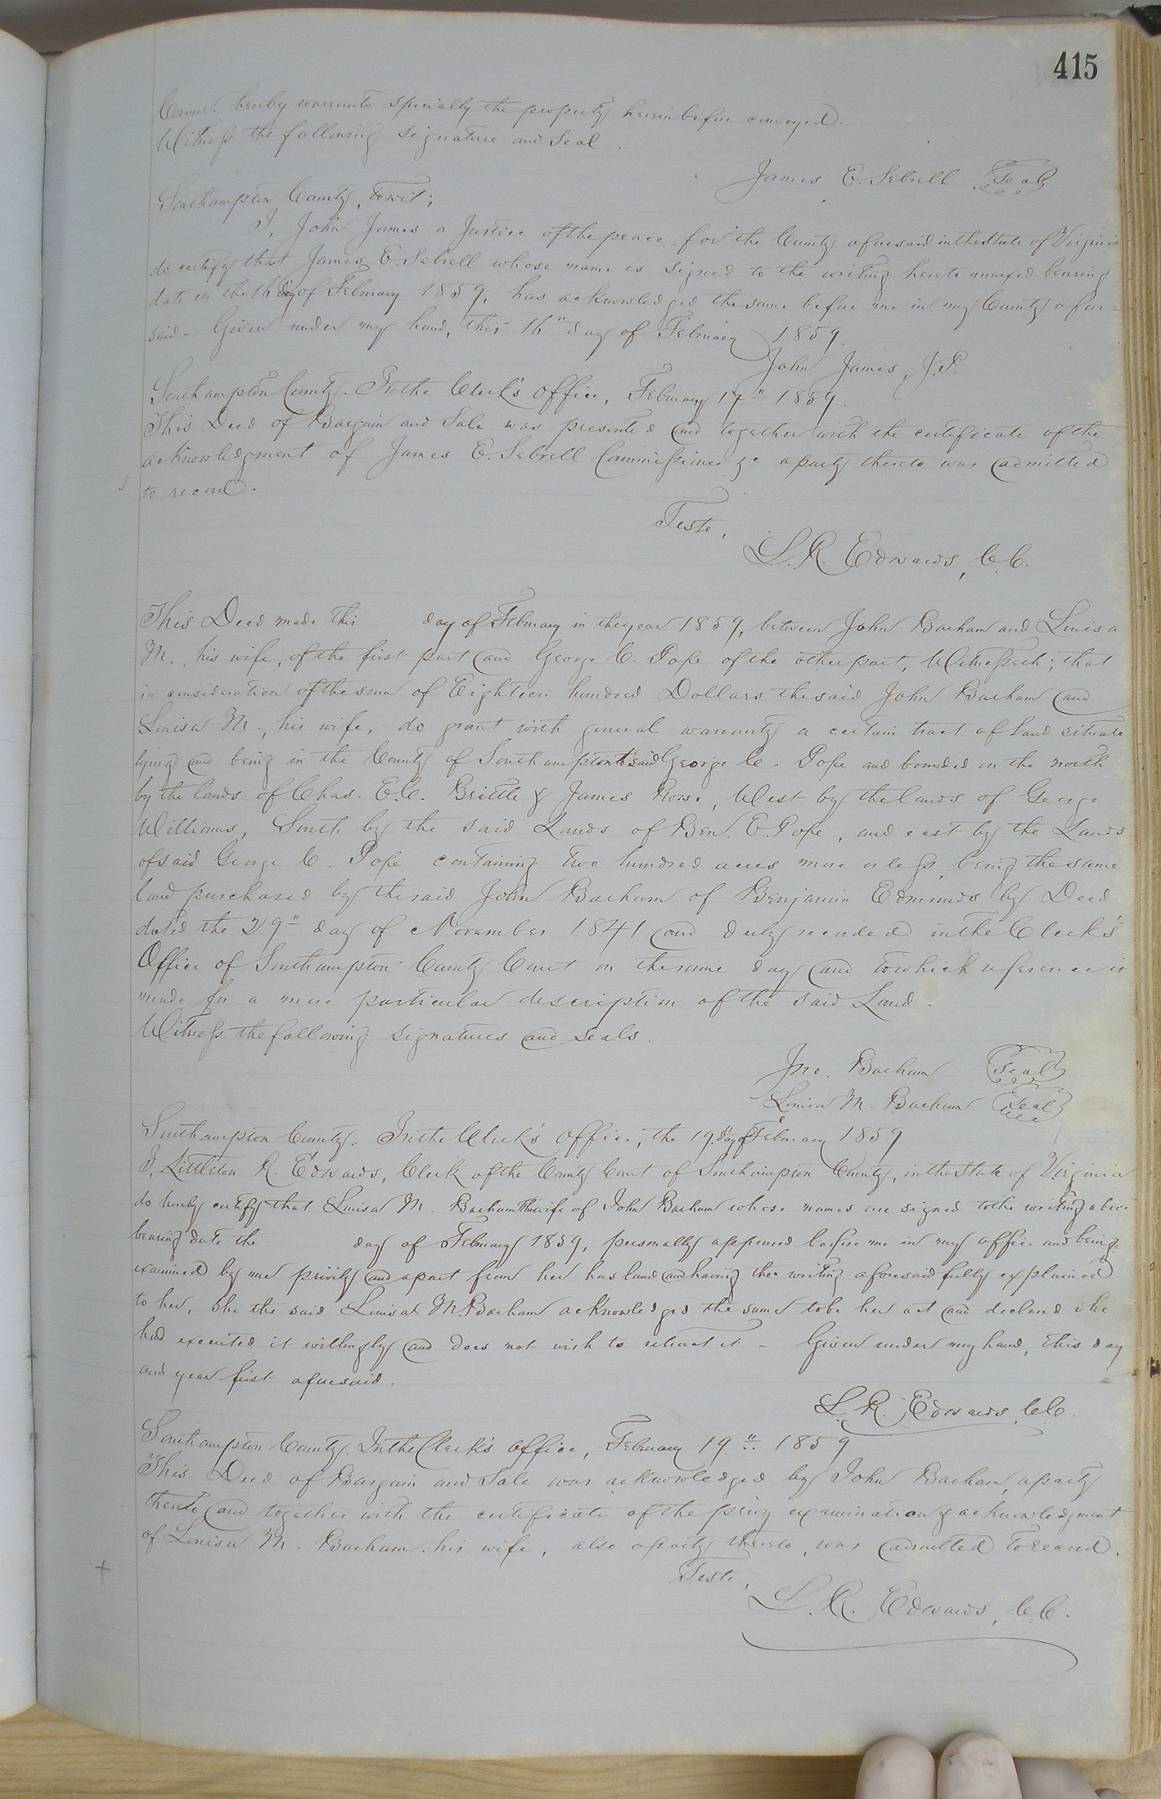 415
Comr. hereby warrants specially the property hereinbefore conveyed.
Witness the following signature and seal.
James E. Sebrell Seal
Southampton County, towit;
I, John James a Justice of the peace for the County aforesaid in the State of Virginia
do certify that James E. Sebrell whose name is signed to the writing hereto annexed bearing
date on the 16 day of February 1859, has acknowledged the same before me in my County afore-
said - Given under my hand, this 16" day of February 1859.
John James J.P.
Southampton County. In the Clerk's Office, February 17" 1859.
This Deed of Bargain and Sale was presented and together with the certificate of the
acknowledgment of James E. Sebrell Commissioner &c a party thereto was admitted
to record.
Teste,
L. R. Edwards, C.C.
This Deed made this day of February in the year 1859, between John Barham and Louisa
M., his wife, of the first part and George C. Pope of the other part, Witnesseth; that
in consideration of the sum of Eighteen hundred Dollars the said John Barham and
Louisa M., his wife, do grant with general warranty a certain tract of Land situate
lying and being in the County of Southampton to said George C. Pope and bounded on the north
by the lands of Chas. E.C. Brittle & James Rowe, West by the lands of George
Williams, South by the said Lands of Ben. E. Pope, and east by the Lands
of said George C. Pope containing two hundred acres more or less, being the same
land purchased by the said John Barham of Benjamin Edmunds by Deed
dated the 29" day of November 1841 and duly recorded in the Clerk's
Office of Southampton County Court on the same day and to which reference is
made for a more particular description of the said Land.
Witness the following signatures and seals.
Jno. Barham Seal
Louisa M. Barham Seal
Southampton County. In the Clerk's Office, the 19" day of February 1859
I, Littleton R. Edwards, Clerk of the County Court of Southampton County, in the State of Virginia
do hereby certify that Louisa M. Barham the wife of John Barham whose names are signed to the writing above
bearing date the day of February 1859, personally appeared before me in my office and being
examined by me privily and apart from her husband and having the writing aforesaid fully explained
to her, she the said Louisa M. Barham acknowledged the same to be her act and declared she
had executed it willingly and does not wish to retract it - Given under my hand, this day
and year first aforesaid.
L. R. Edwards, C.C.
Southampton County. In the Clerk's Office, February 19" 1859
This Deed of Bargain and Sale was acknowledged by John Barham, a party
thereto and together with the certificate of the privy examination & acknowledgment
of Louisa M. Barham his wife, also a party thereto, was admitted to record.
Teste,
L. R. Edwards, C.C.